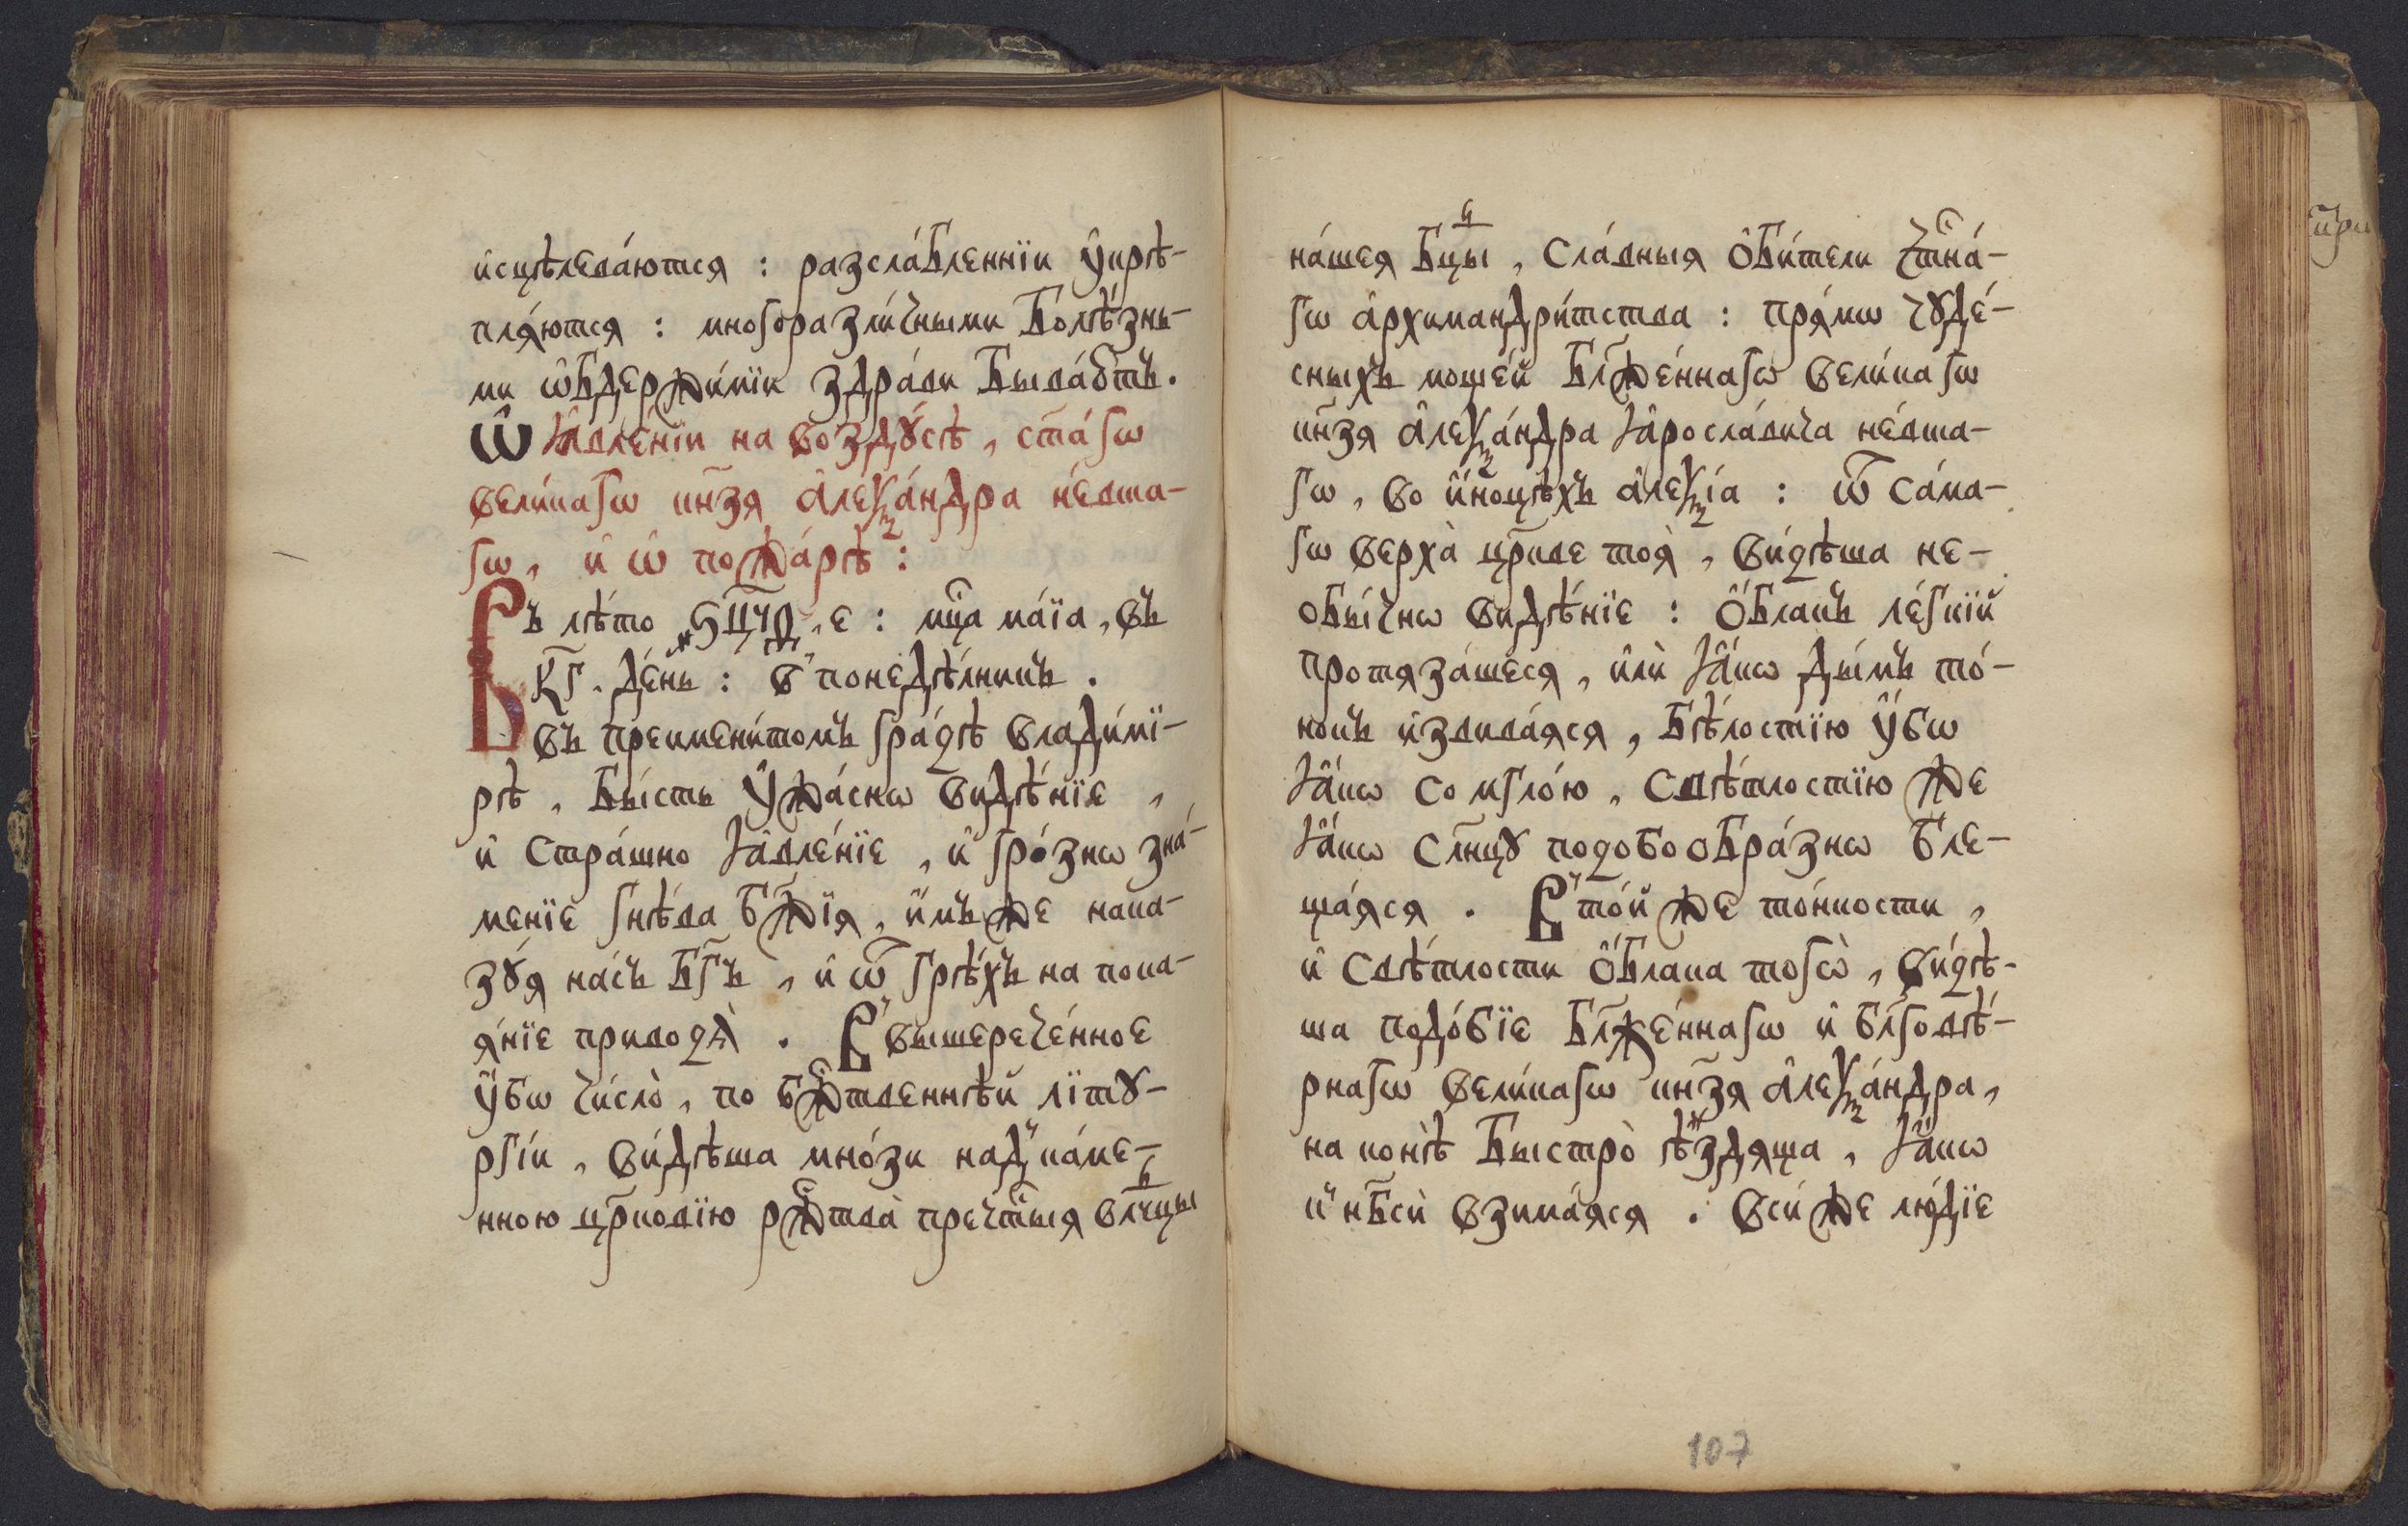 и҆сцѣлева́ются : разсла́бленнїи ᲂу҆крѣ-
пля́ются : многоразли́чными болѣ́знь-
ми ѡ҆бдержи́мїи здра́ви быва́ꙋтъ.
Ѽ ꙗ҆вле́нїи на возду́сѣ , ст҃а́гѡ
вели́кагѡ кн҃зя а҆леѯа́ндра не́вша-
гѡ , и҆ ѡ҆ пожа́рѣ :
Въ лѣ́то ҂ѕцчѳ , е : мц҃а ма́їа , въ
к҃г . де́нь : в̾ понедѣ́лникъ .
въ преимени́томъ гра́дѣ влади́мі-
рѣ , бы́сть ᲂу҆жа́снѡ видѣ́нїе ,
и҆ стра́шно ꙗ҆вле́нїе , и҆ гро́знѡ зна́-
менїе гнѣ́ва бж҃їя , и҆́мъже нака-
зꙋ́я на́съ бг҃ъ , и҆ ѿ грѣ́хъ на пока-
я́нїе приводѧ̀ . В̾ вышерече́нное
ᲂу҆́бѡ число̀ , по бжⷭ҇твеннѣй лїтꙋ-
ргі́и , ви́дѣша мно́зи над̾ ка́ме-
нною цр҃ковїю ржⷭ҇тва̀ пречⷭ҇тыя влⷣчцы
на́шея бцⷣы , сла́вныя ѻ҆би́тели чⷭ҇тна́-
гѡ а҆рхимандри́тства : пря́мѡ чꙋде́-
сныхъ моще́й бл҃же́ннагѡ вели́кагѡ
кн҃зя а҆леѯа́ндра ꙗ҆росла́вича не́вша-
гѡ , во и҆́ноцѣхъ а҆леѯі́а : ѿ са́ма-
гѡ верха̀ цр҃кве тоя̀ , ви́дѣша не-
обы́чнѡ видѣ́нїе : ѻ҆́блакъ ле́гкїй
протяза́шеся , и҆лѝ ꙗ҆́кѡ ды́мъ то́-
нокъ и҆звива́яся , бѣ́лостїю ᲂу҆́бѡ
ꙗ҆́кѡ со мгло́ю , свѣ́тлостїю же
ꙗ҆́кѡ сл҃нцꙋ подобообра́знѡ бле-
ща́яся . В̾ то́й же то́нкости ,
и҆ свѣ́тлости ѻ҆́блака тогѡ̀ , ви́дѣ-
ша подо́бїе бл҃же́ннагѡ и҆ бл҃говѣ́-
рнагѡ вели́кагѡ кн҃зя а҆леѯа́ндра ,
на конѣ̀ быстро̀ ѣ҆́здяща , ꙗ҆́кѡ
к̾ нб҃сѝ взима́яся . всѝ же лю́дїе
107
при